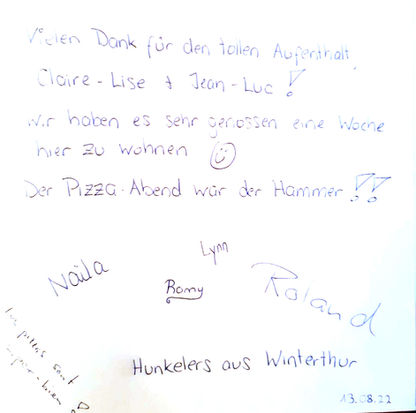 Vielen Dank für den tollen Aufenthalt,
Claire-Lise + Jean-Luc!
Wir haben es sehr genossen eine Woche
hier zu wohnen ☺
Der Pizza-Abend war der Hammer!!
Lynn
Naila
Romy
Roland
sont
Hunkelers aus Winterthur
13.08.22